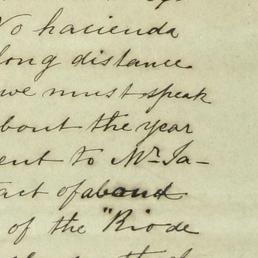 No hacienda
long distance
we must speak
about the year
ent to Mr. Ja-
act of aband
of the "Rio de